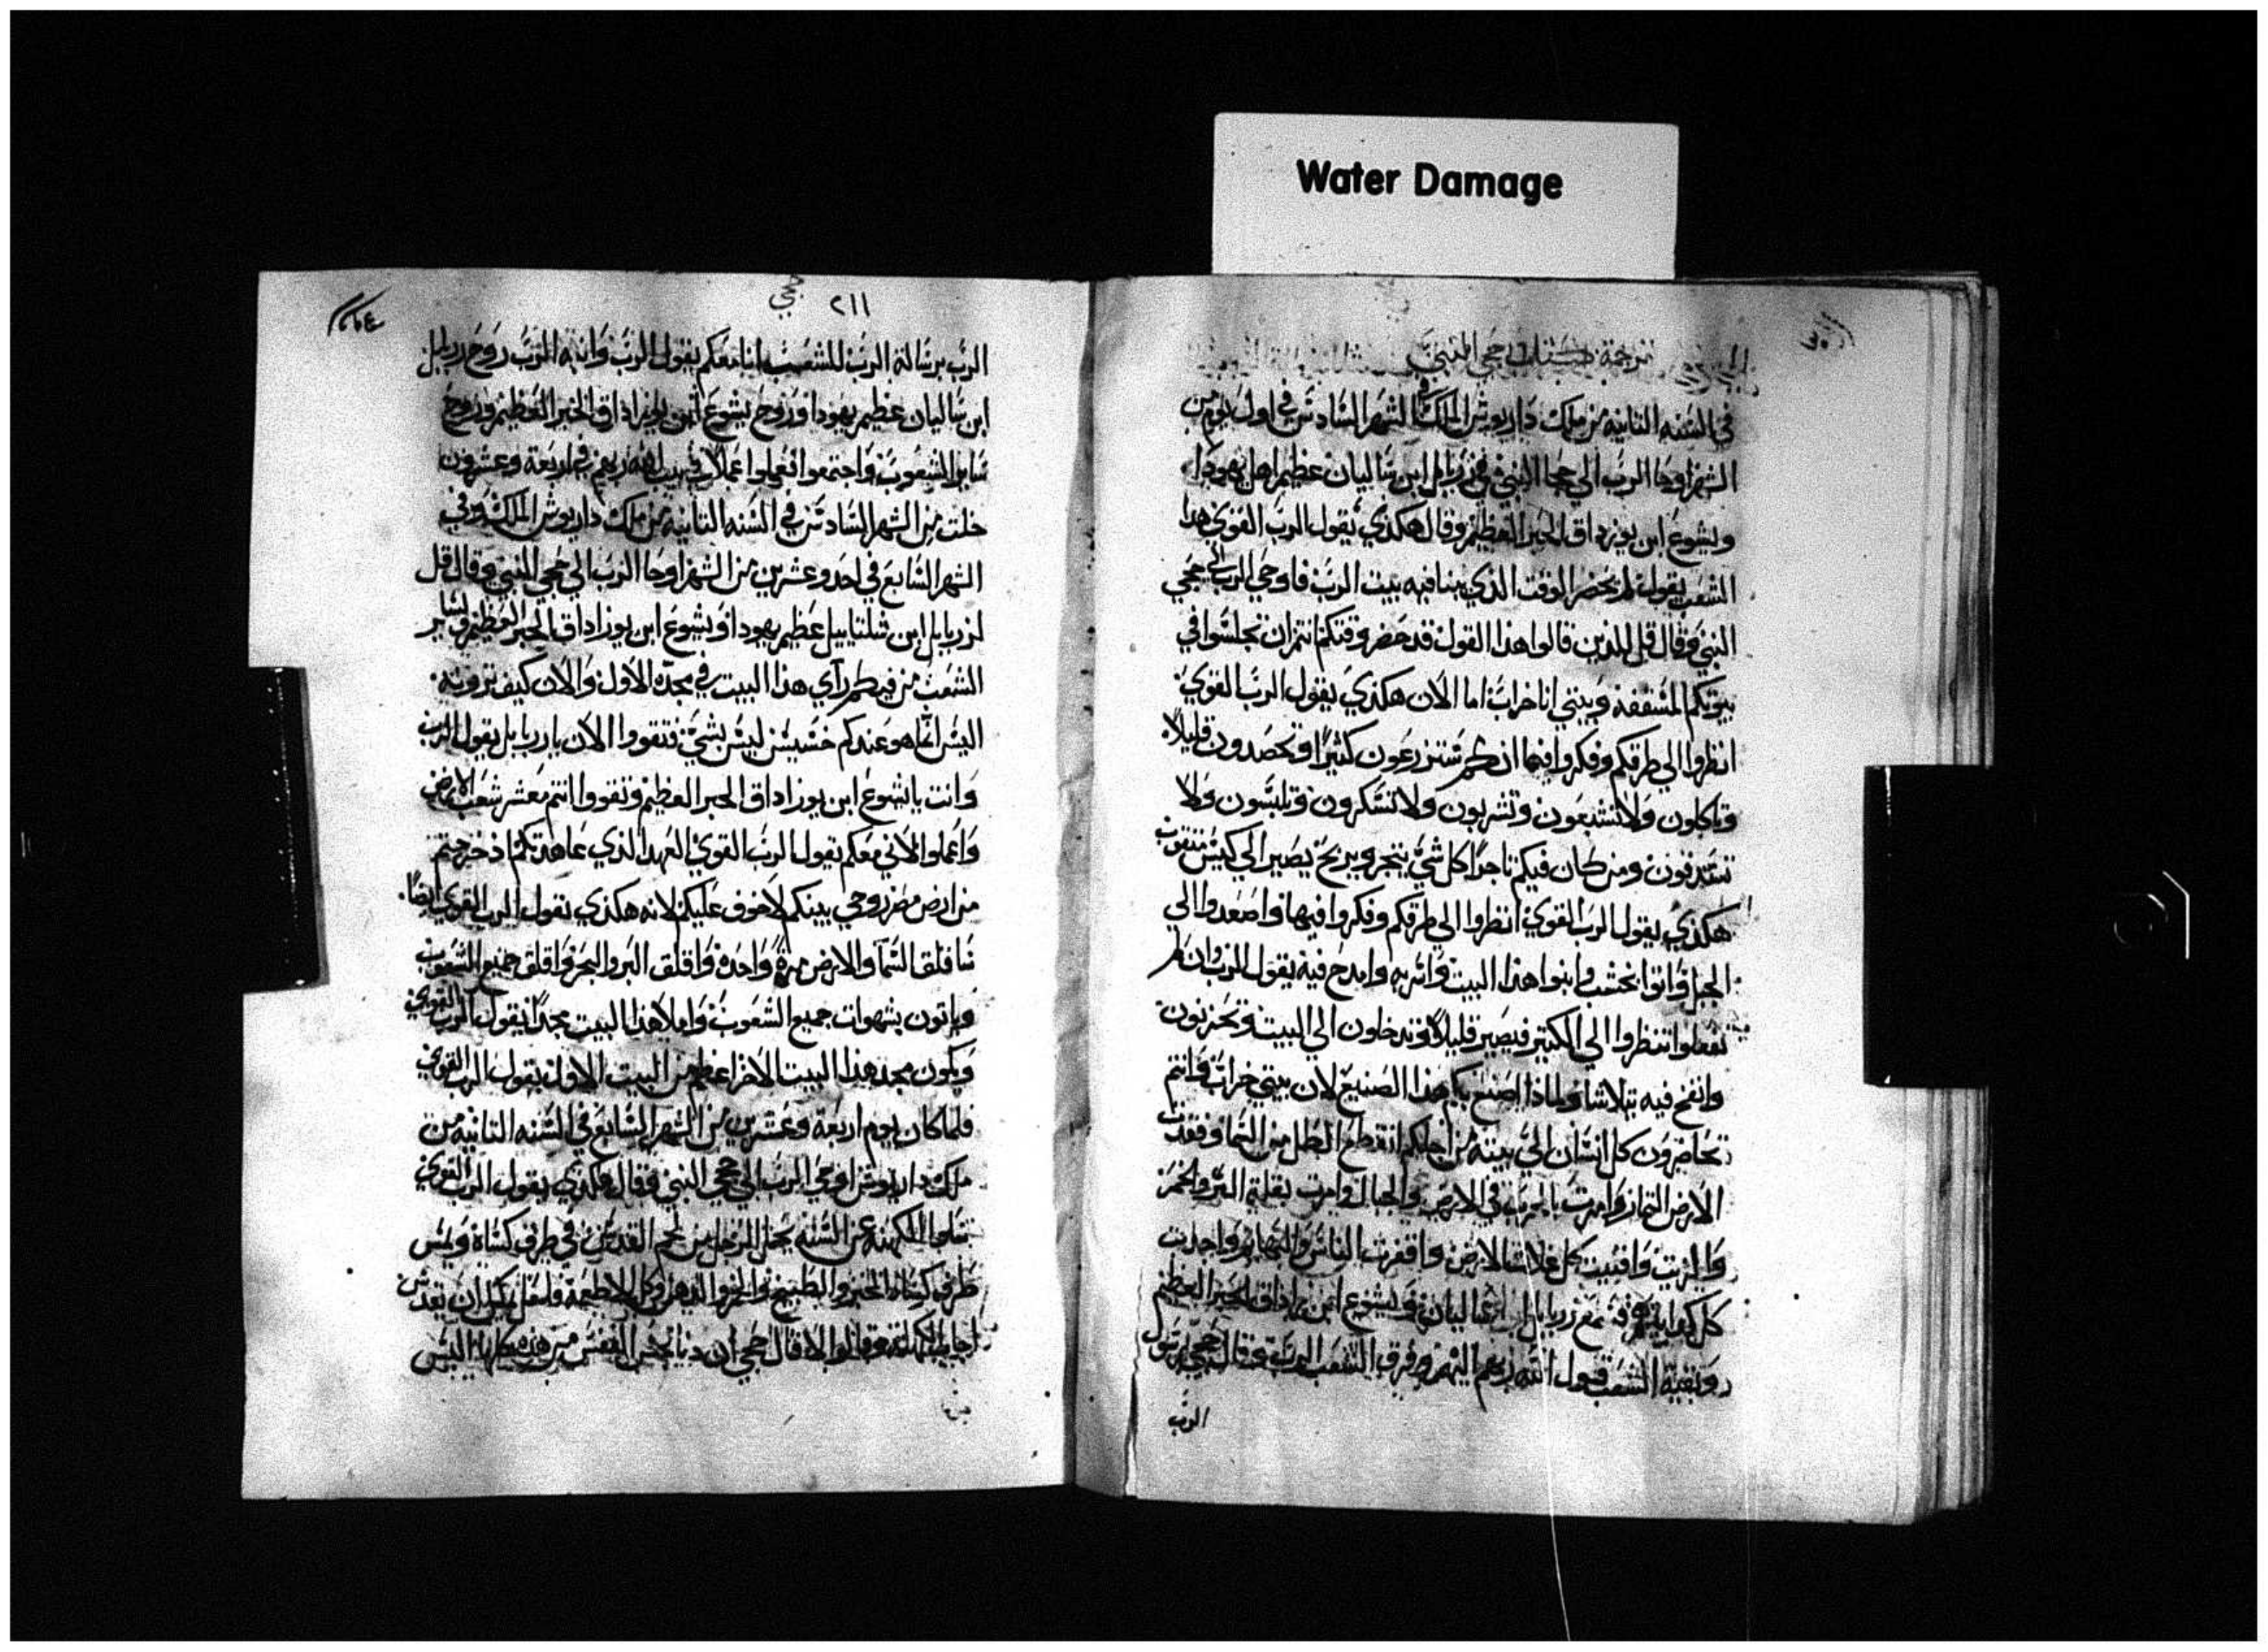 Water Damage
ترجمة حجي النبي
في السنه الثانيه من ملك داريوش الملك في الشهر السادس في اول يوم من
الشهر اوحا الرب الي حجا النبي في زربابل ابن ساليان عظيم اهل يهودا
ويشوع ابن يوزاداق الحبر العظيم وقال هكذي يقول الرب القوي هذا
الشعب يقول لم يحضر الوقت الذي يبنا فيه بيت الرب فاوحي الرب الي حجي
النبي وقال قل للذين قالوا هذا القول قد حضر وقتكم انتم ان تجلسوا في
بيوتكم المسقفة وبيتي انا خراب اما الان هكذي يقول الرب القوي
انظروا الي طرقكم وفكروا فيها انكم ستزرعون كثيرًا وتحصدون قليلاً
وتاكلون ولا تشبعون وتشربون ولا تسكرون وتلبسون ولا
تستدفون ومن كان فيكم تاجرًا كل شي يتجر ويربح يصير الي كيس منقوب
هكذي يقول الرب القوي انظروا الي طرقكم وفكروا فيها واصعدوا الي
الجبل واتوا بخشب وابنوا هذا البيت واتربه وامدح فيه يقول الرب وان لم
تفعلوا انتظروا الي الكتير فيصير قليلاً وتدخلون الي البيت وتخزنون
وانفخ فيه يتلاشا ولماذا اصنع بكم هذا الصنيع لان بيتي خراب وانتم
تحاضرون كل انسان الي بيته من اجلكم انقطع الطل من السما وفقدت
الارض الثمار وامرت بالحرب في الارض والجبال وامرت بقلة البر والخمر
والزيت وافنيت كل غلات الارض واقفرت الناس والبهايم واجدبت
كل مع زربابل ابن ساليان ويشوع ابن يوزاداق الحبر العظيم
وبقية الشعب قول الله ربهم اليهم وفرق الشعب الرب فقال حجي رسول
الرب
٢١١
حجي
الرب برسالة الرب للشعب انا معكم يقول الرب وانبه الرب روح زربابل
ابن ساليان عظيم يهودا وروح يشوع ابن يوزاداق الحبر العظيم وروح
ساير الشعوب واجتمعوا ففعلوا اعمالا في بيت الله ربهم في اربعة وعشرون
خلت من الشهر السادس في السنه الثانيه من ملك داريوش الملك وفي
الشهر السابع في احد وعشرين من الشهر اوحا الرب الي حجي النبي وقال قل
لزربابل ابن شلتاييل عظيم يهودا ويشوع ابن يوزاداق الحبر العظيم ولساير
الشعب من فيكم راي هذا البيت في مجده الاول والان كيف ترونه
اليس انما هو عندكم خسيس ليس بشي فتقووا الان يا زربابل يقول الرب
وانت يا يشوع ابن يوزاداق الحبر العظيم وتقووا انتم معشر شعب الارض
واعملوا لاني معكم يقول الرب القوي العهد الذي عاهدتكم اذ خرجتم
من ارض مصر روحي بينكم لا خوف عليكم لانه هكذي يقول الرب القوي ايضًا
ساقلق السما والارض مرة واحدة واقلق البر والبحر واقلق جميع الشعوب
وياتون بشهوات جميع الشعوب واملا هذا البيت مجدًا يقول الرب القوي
ويكون مجد هذا البيت الاخر اعظم من البيت الاول يقول الرب القوي
فلما كان يوم اربعة وعشرين من الشهر السابع في السنه الثانيه من
ملك داريوش اوحي الرب الي حجي النبي وقال هكذي يقول الرب القوي
سلوا الكهنة عن السنه يحمل الرجل من لحم القدس في طرف كساة ويمس
طرف كساة الخبز والطبيخ والخمر والدهن وكل الاطعمة فلعل يمكن ان يقدس
اجابت الكهنة وقالوا لا قال حجي ان دنا نجس النفس من هذه كلها اليس